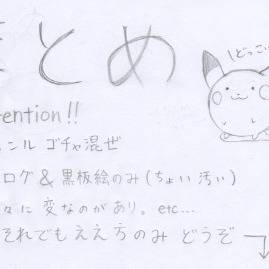 まとめ
どっこい
tention!!
ンル ゴチャ混ぜ
ログ & 黒板絵のみ (ちょい汚い)
々に 変なのがあり。etc...
それでもええ方のみ どうぞ